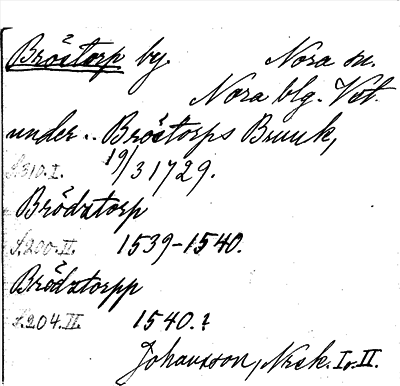 Bröstorp by. Nora sn.
Nora blg. Vstm.
under .. Bröstorps Bruuk,
s.310.I. 19/3 1729.
Brödstorp
s.200.II. 1539-1540.
Brödstorpp
s.204.II. 1540.
Johansson, Nsek. I o. II.